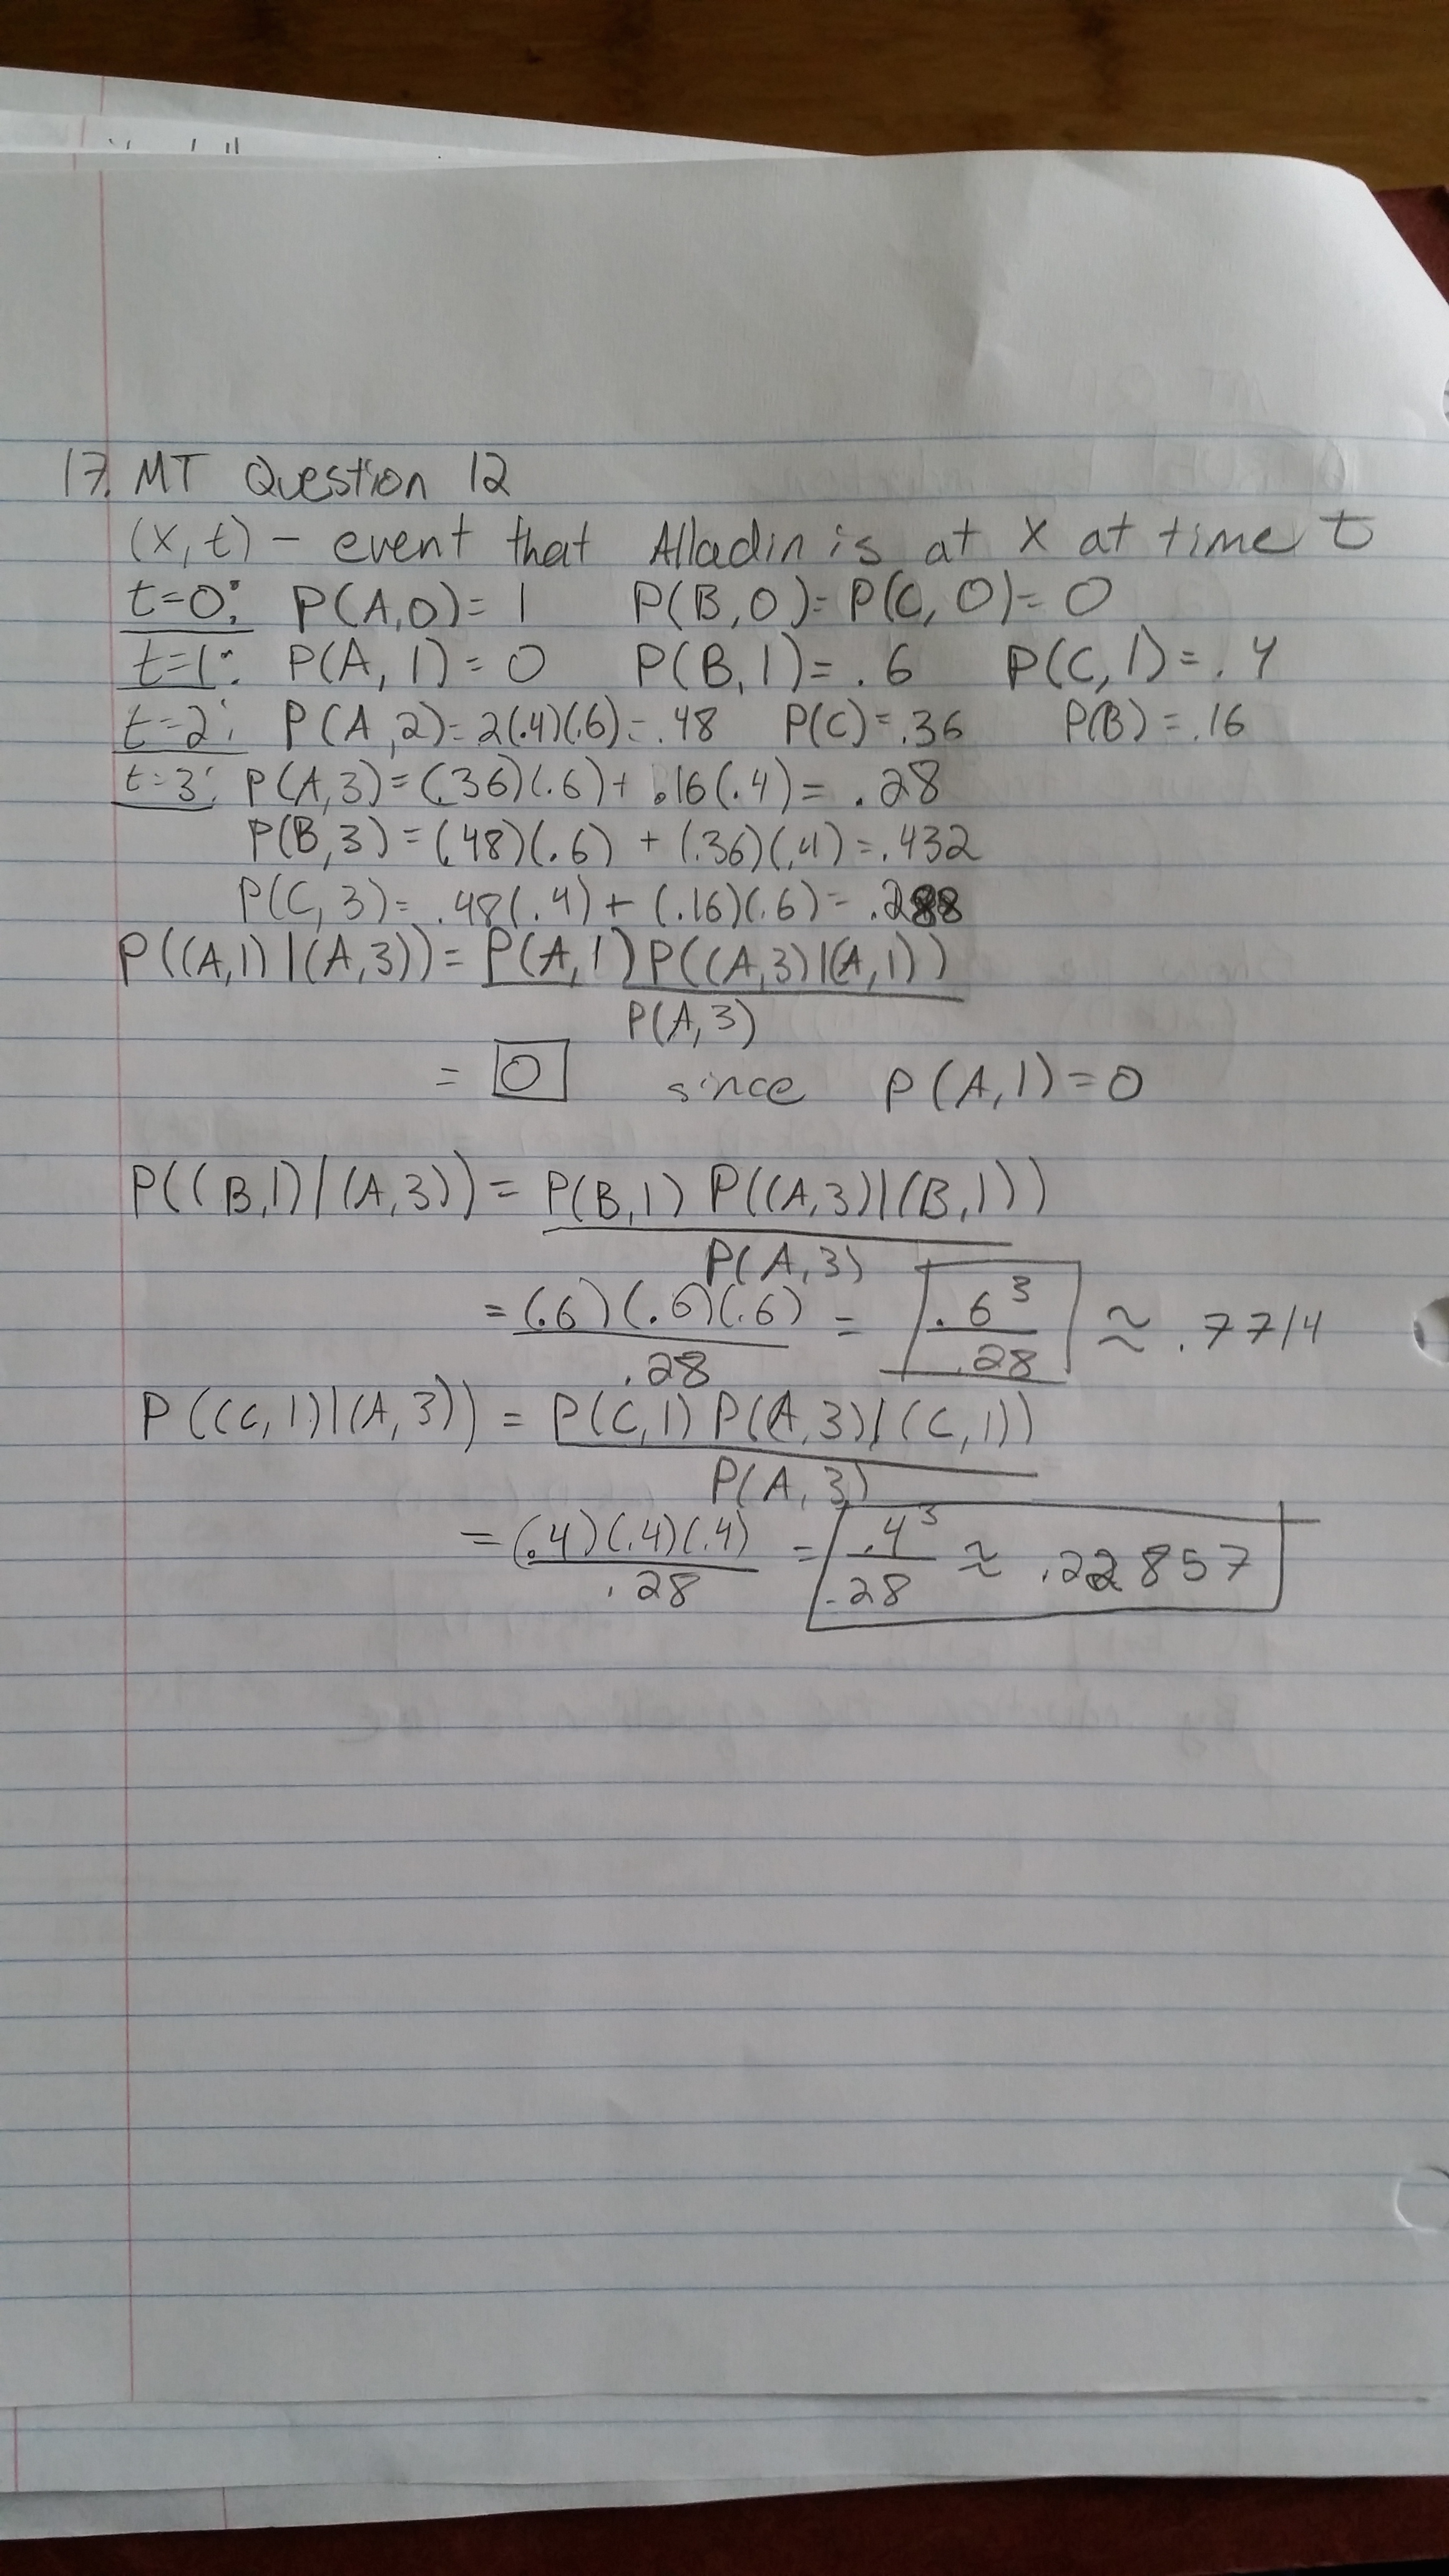 17. MT Question 12
(x, t) - event that Alladin is at x at time t
t=0: P(A,0)= 1 P(B,0)= P(C,0)= 0
t=1: P(A,1)= 0 P(B,1)= .6 P(C,1)= .4
t=2: P(A,2)= 2(.4)(.6)= .48 P(C)= .36 P(B)= .16
t=3: P(A,3)= (.36)(.6)+ .16(.4)= .28
P(B,3)= (.48)(.6) + (.36)(.4)= .432
P(C,3)= .48(.4)+ (.16)(.6)= .288
P((A,1)|(A,3))= P(A,1)P((A,3)|(A,1))
P(A,3)
= 0 since P(A,1)=0
P((B,1)|(A,3))= P(B,1) P((A,3)|(B,1))
P(A,3)
= (.6)(.6)(.6) = .6³ ≈ .7714
.28 .28
P((C,1)|(A,3)) = P(C,1) P(A,3)|(C,1))
P(A,3)
= (.4)(.4)(.4) = .4³ ≈ .22857
.28 .28